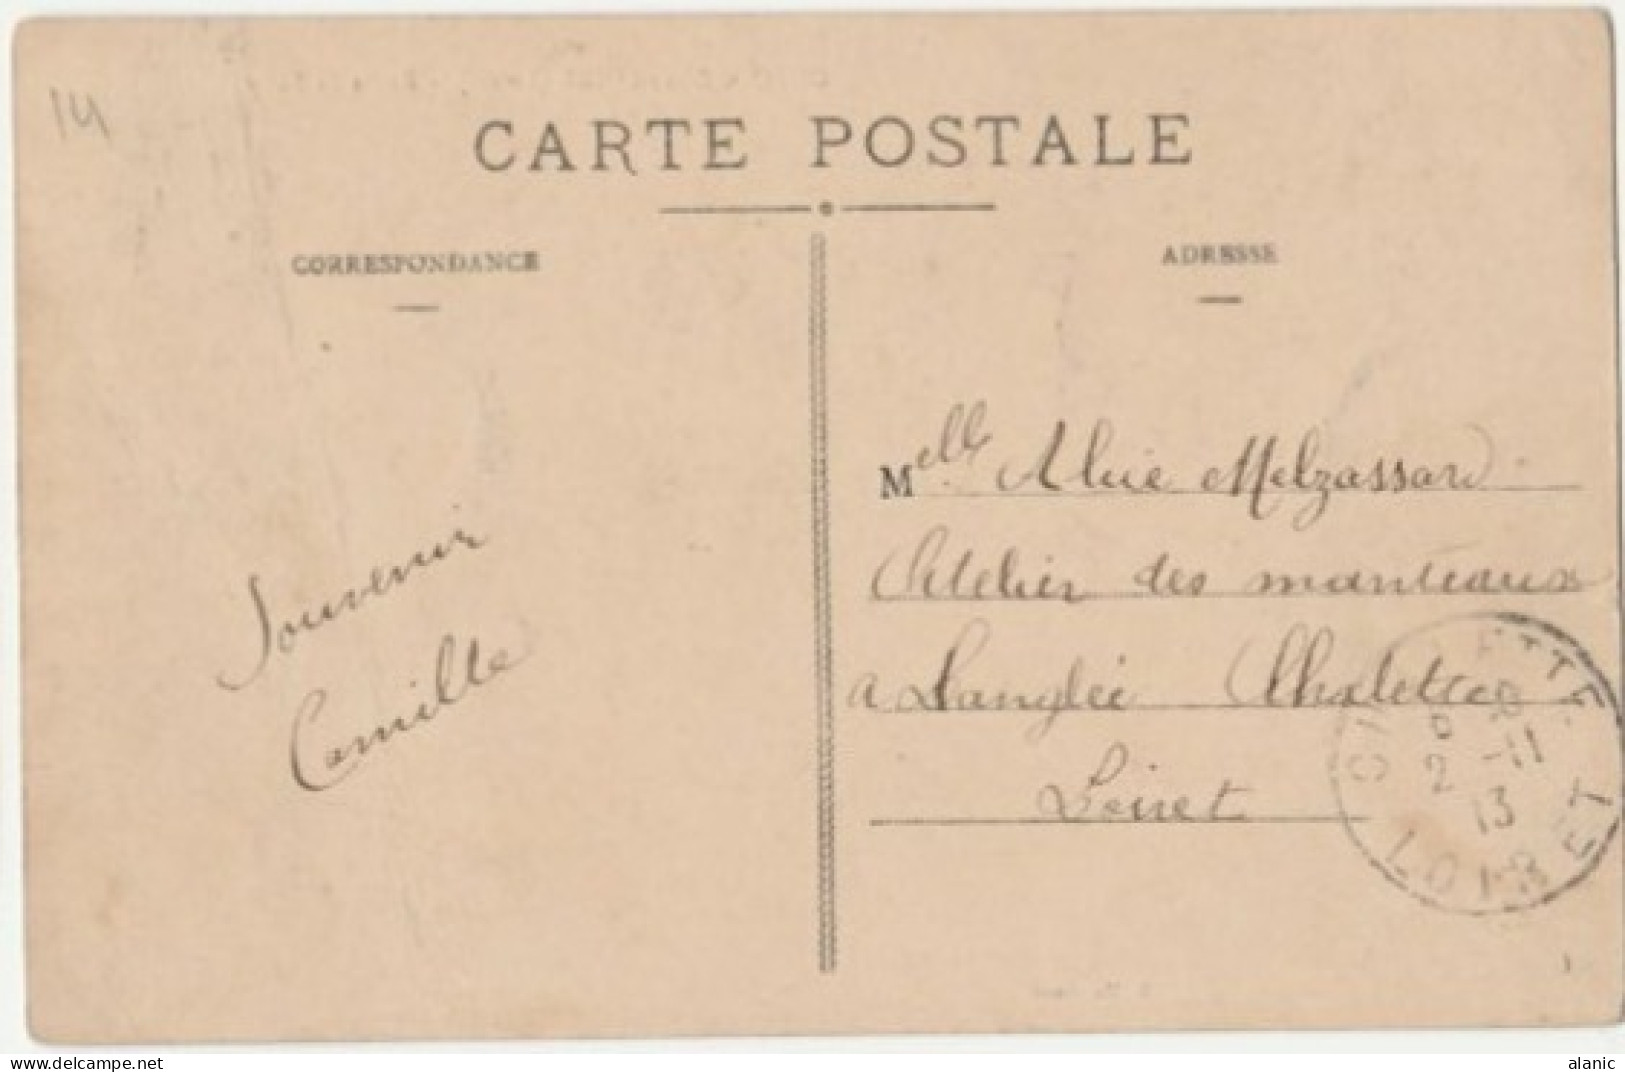 14
CARTE POSTALE
CORRESPONDANCE
ADRESSE
Souvenir
Camille
Melle Alice Melzassard
Atelier des manteaux
a Langlée Chalette
Loiret
2 -11
13
LOIRET
www.delcampe.net
alanic